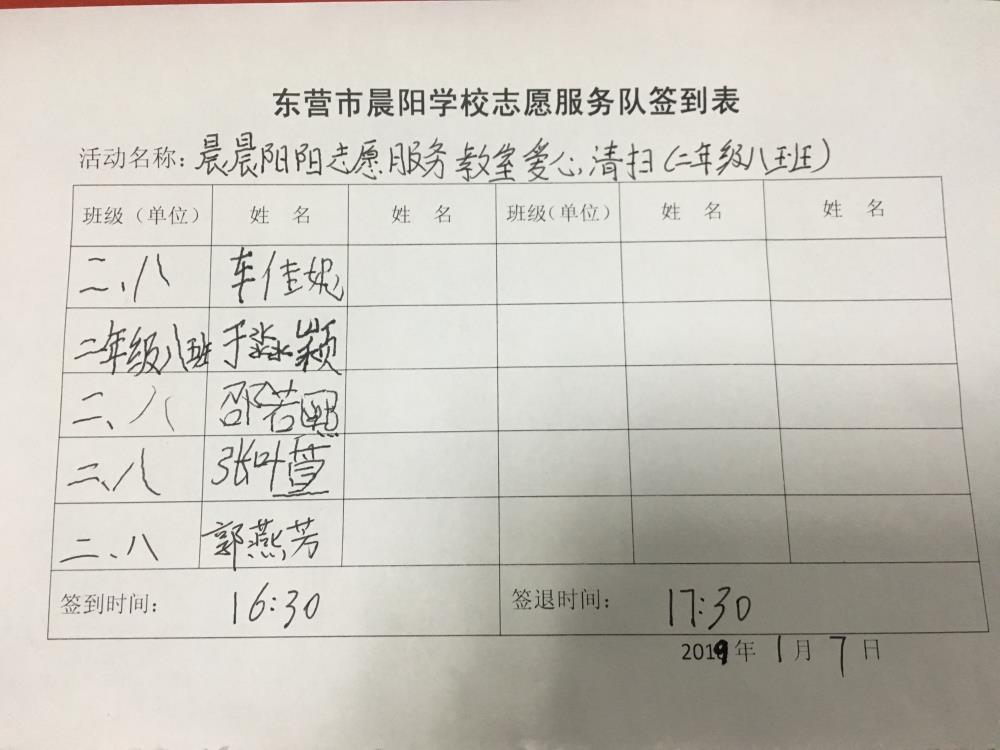 东营市晨阳学校志愿服务队签到表
活动名称：晨晨阳阳志愿服务教室爱心清扫（二年级八班）
班级（单位） 姓 名 姓 名 班级（单位） 姓 名 姓 名
二、八 车佳妮
二年级八班 于淼颖
二、八 邵若熙
二、八 张叶萱
二、八 郭燕芳
签到时间： 16:30 签退时间： 17:30
2019年 1月 7日